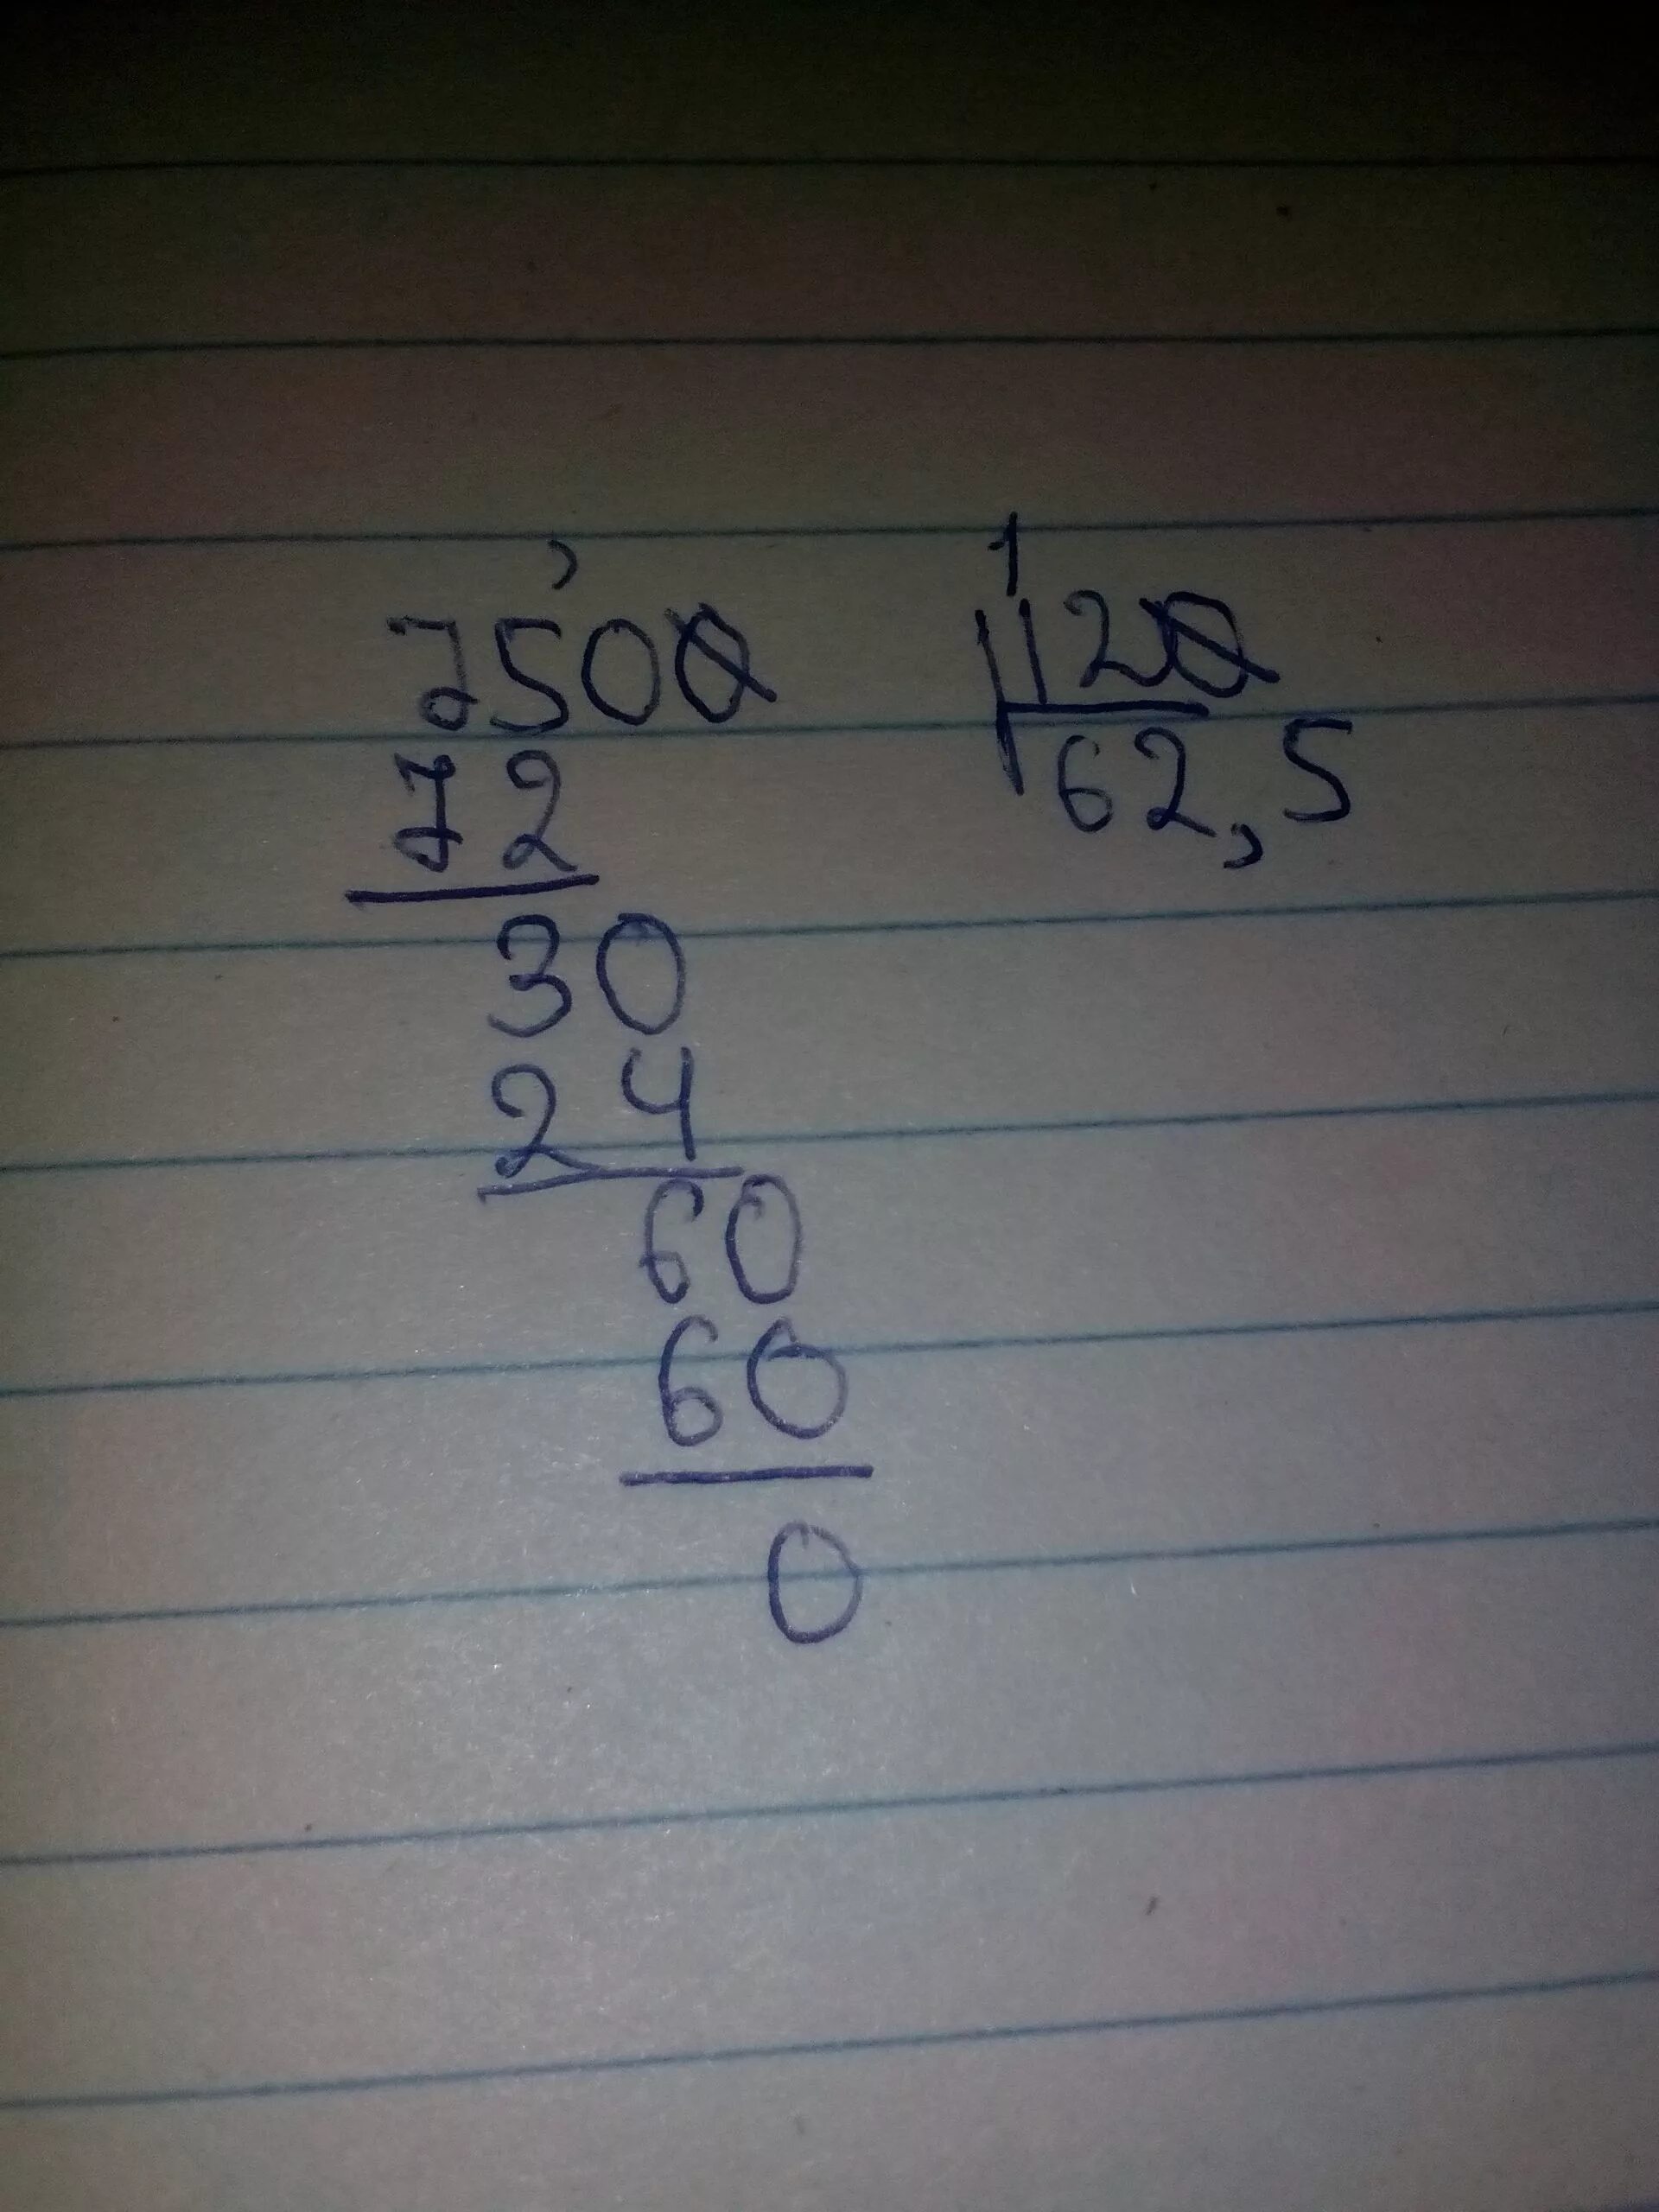 ,
1
7500 120
72 62,5
30
24
60
60
0